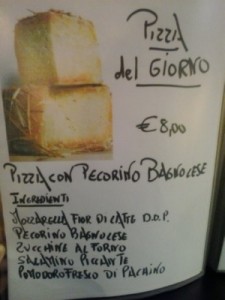 PIZZA
del GIORNO
€ 8,00
PIZZA CON PECORINO BAGNOLESE
INGREDIENTI
MOZZARELLA FIOR DI LATTE D.O.P.
PECORINO BAGNOLESE
ZUCCHINE AL FORNO
SALAMINO PICCANTE
POMODORO FRESCO DI PACHINO